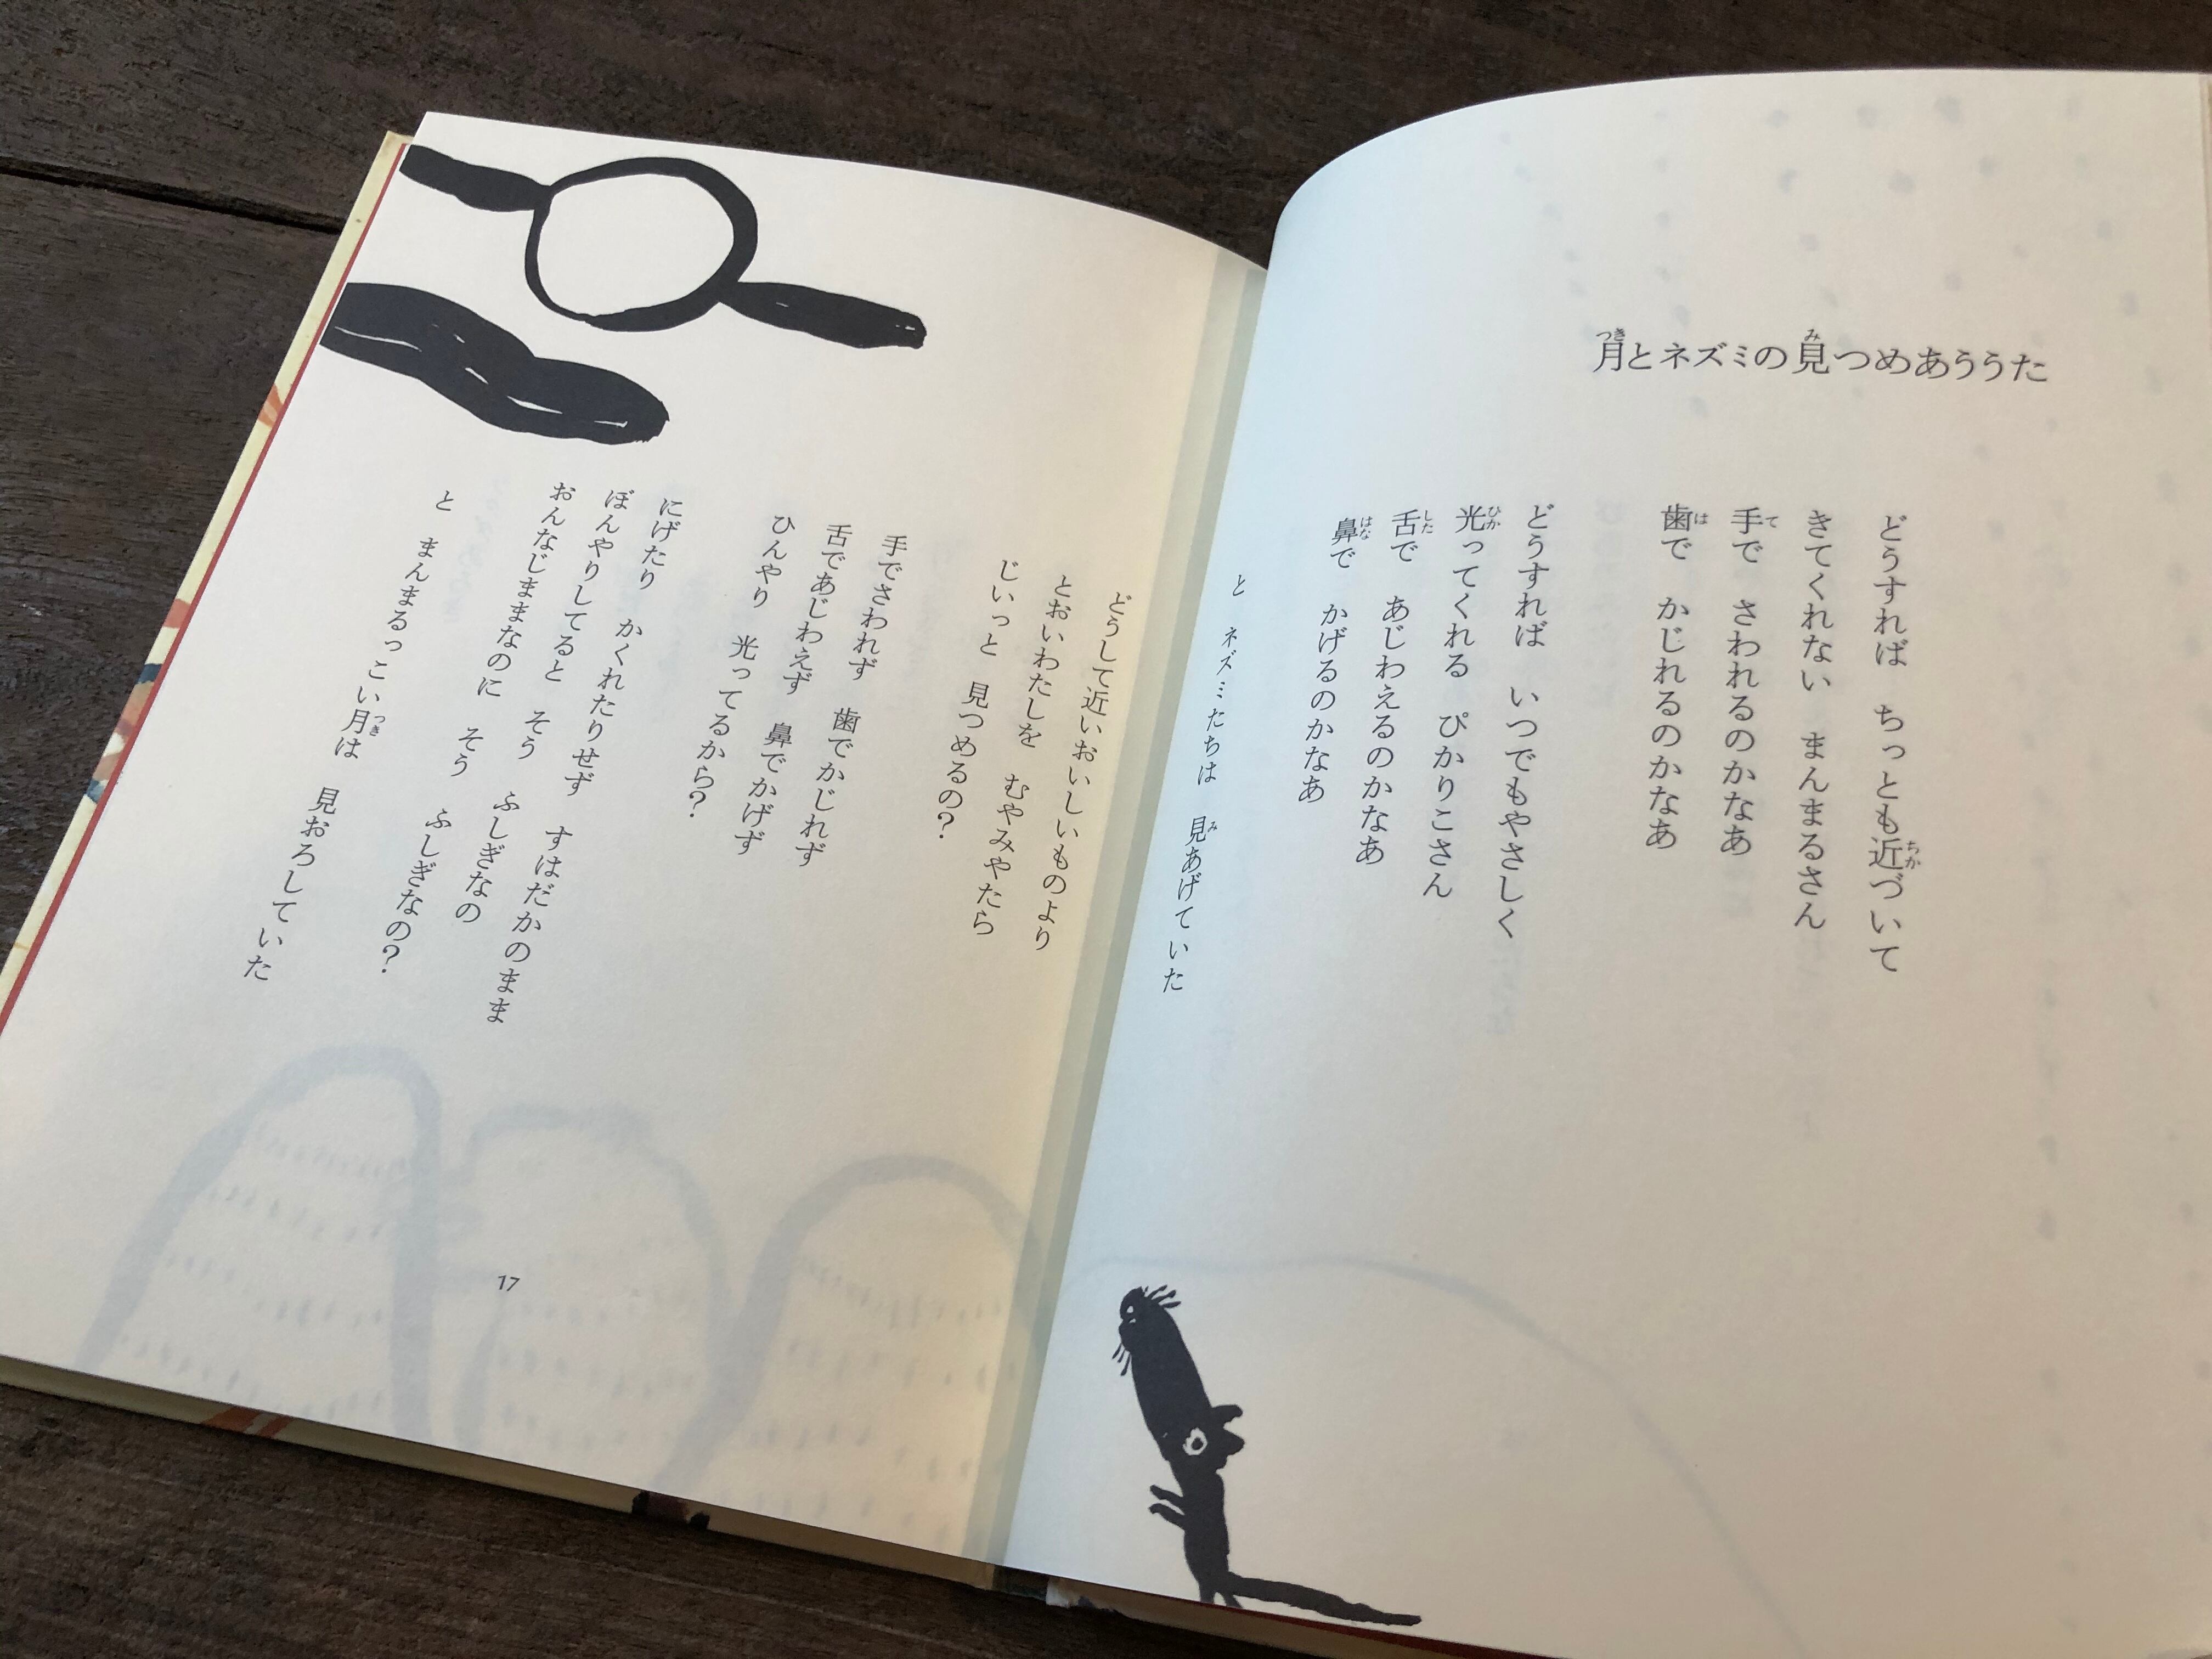 月とネズミの見つめあううた
どうすれば　ちっとも近づいて
きてくれない　まんまるさん
手で　さわれるのかなあ
歯で　かじれるのかなあ
どうすれば　いつでもやさしく
光ってくれる　ぴかりこさん
舌で　あじわえるのかなあ
鼻で　かげるのかなあ
と　ネズミたちは　見あげていた
どうして近いおいしいものより
とおいわたしを　むやみやたら
じいっと　見つめるの？
手でさわれず　歯でかじれず
舌であじわえず　鼻でかげず
ひんやり　光ってるから？
にげたり　かくれたりせず　すはだかのまま
ぼんやりしてると　そう　ふしぎなの
おんなじままなのに　そう　ふしぎなの？
と　まんまるっこい月は　見おろしていた
17